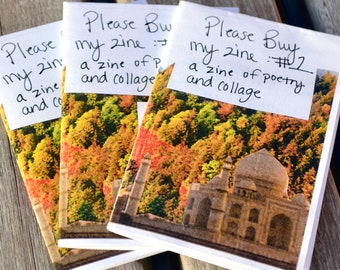 Please Buy
my zine :#
a zine of p
and collage
Please Buy
my zine :#
a zine of p
and collage
Please Buy
my zine :#2
a zine of poetry
and collage